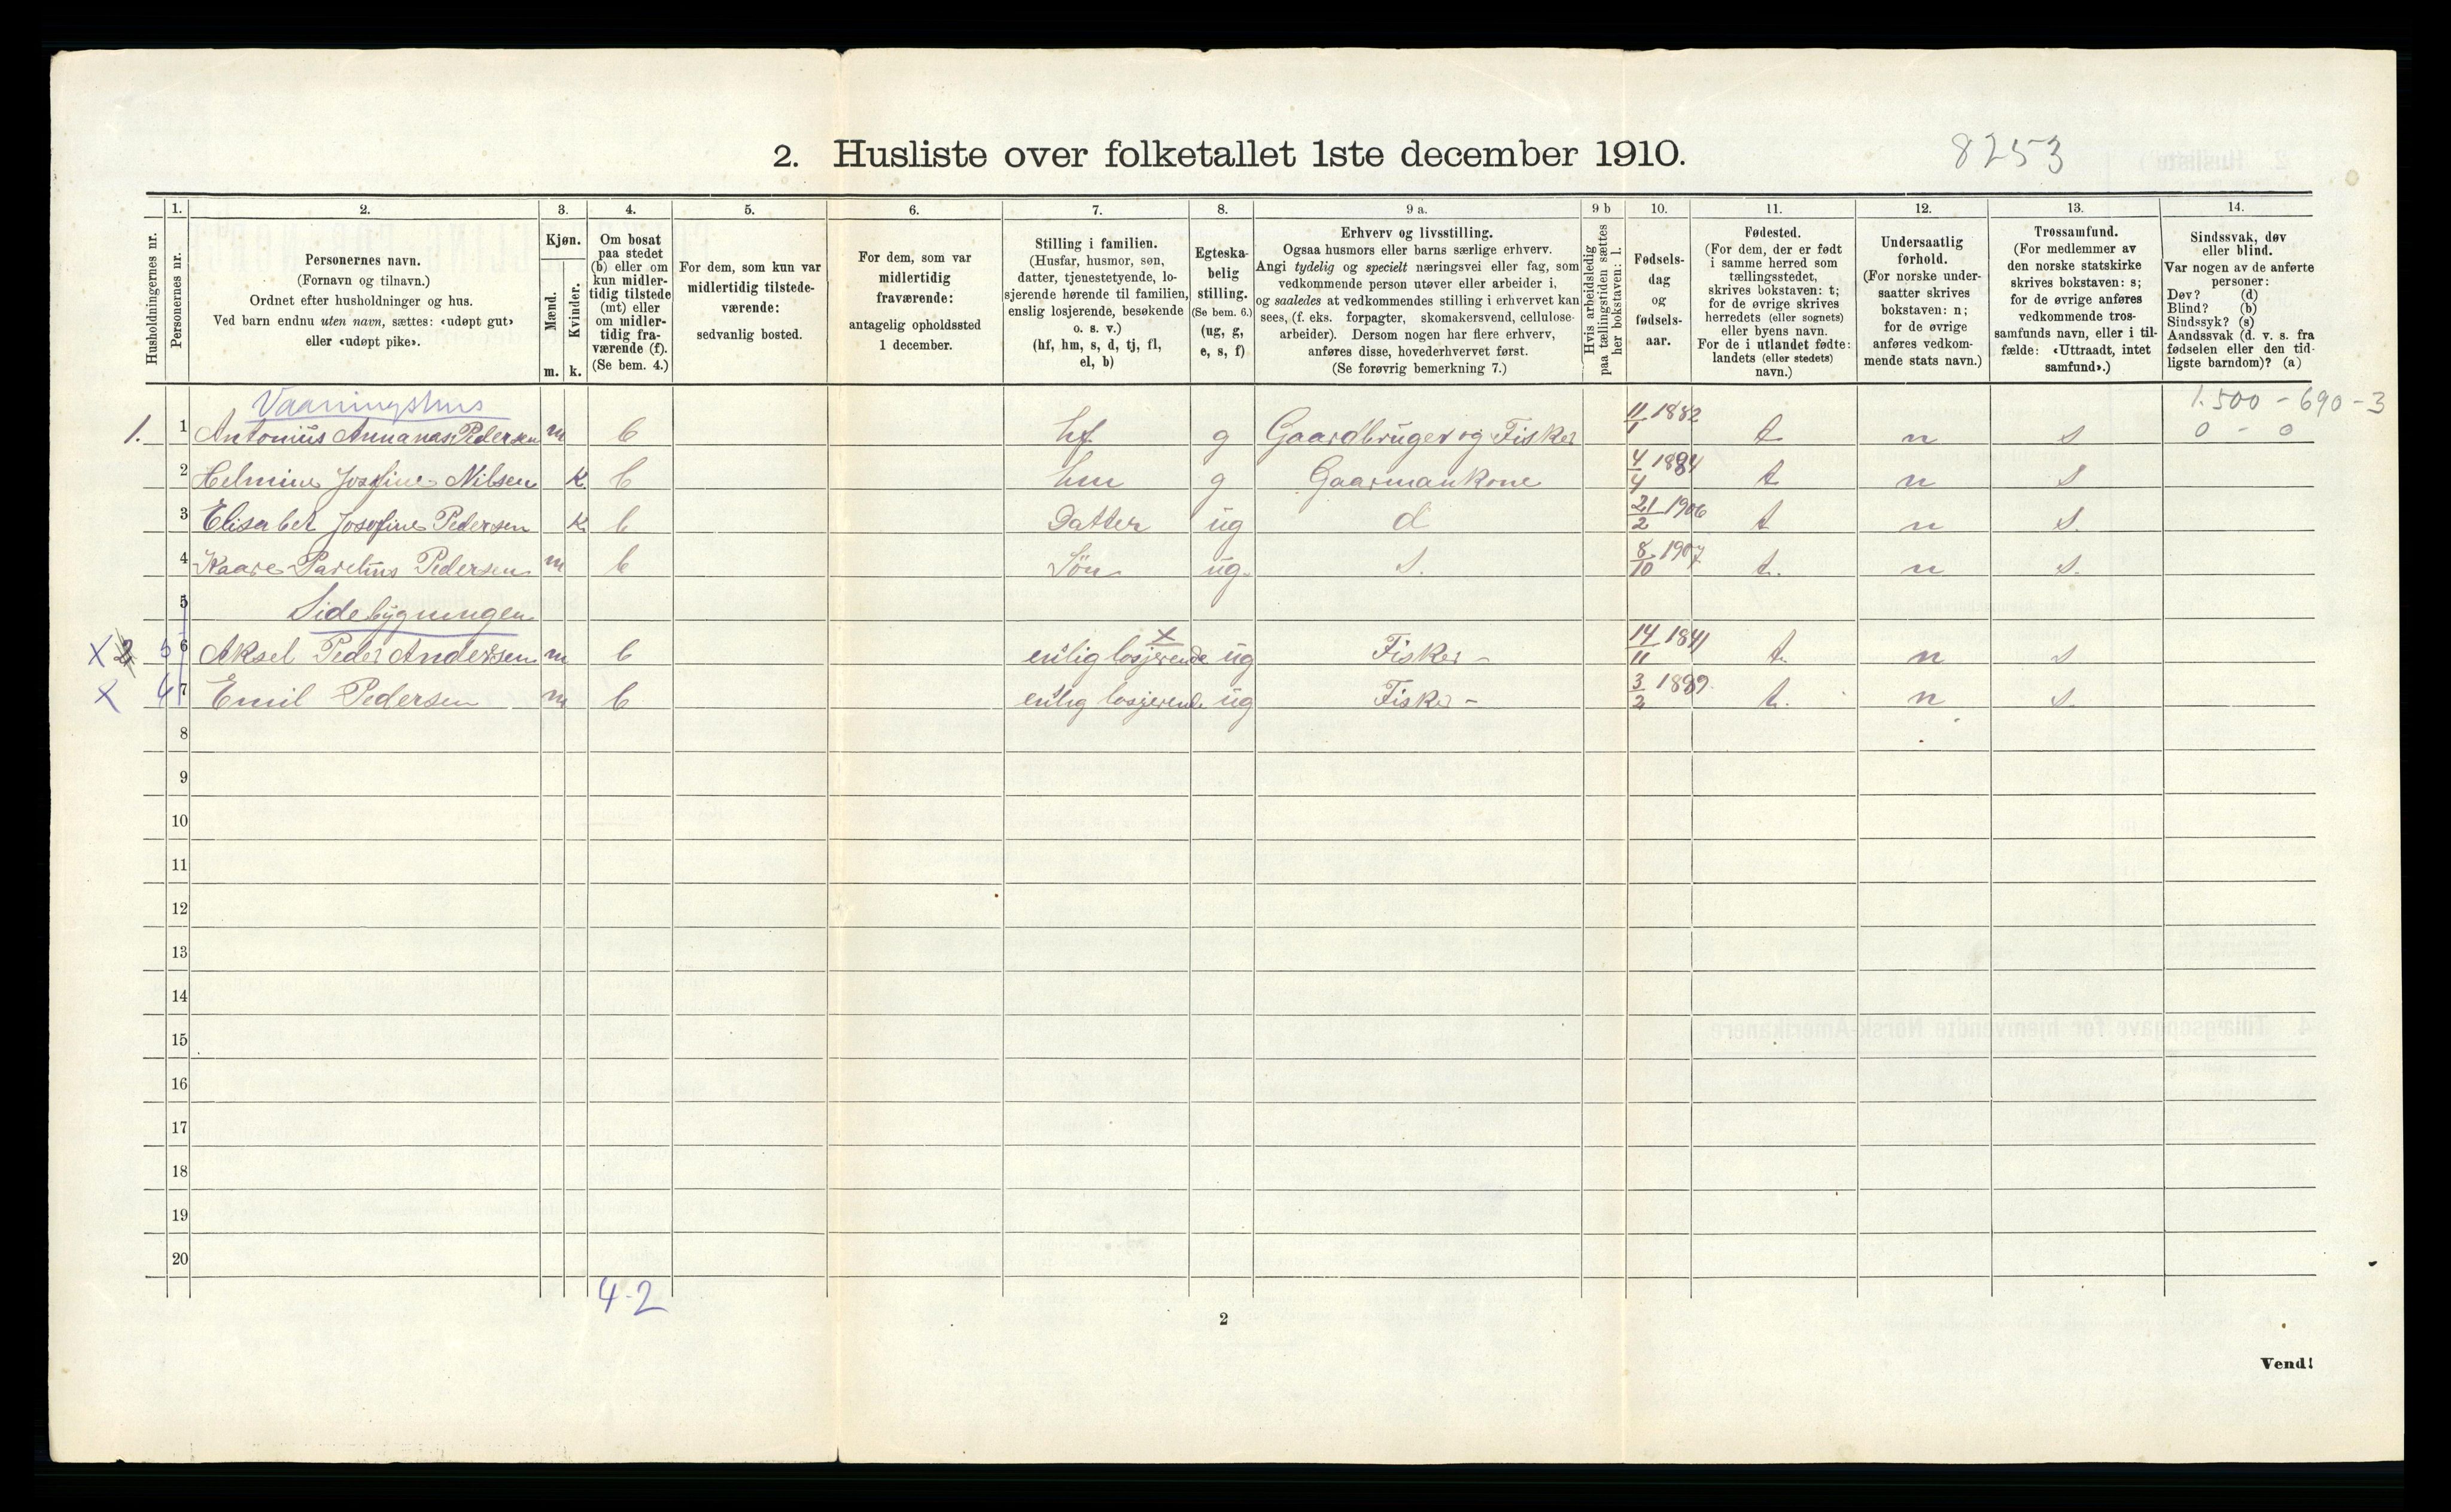 2. Husliste over folketallet 1ste december 1910. 8253
1. 2. 3. 4. 5. 6. 7. 8. 9 a. 9 b 10. 11. 12. 13. 14.
Husholdningernes nr.
Personernes nr.
Personernes navn.
(Fornavn og tilnavn.)
Ordnet efter husholdninger og hus.
Ved barn endnu uten navn, sættes: «udøpt gut»
eller «udøpt pike».
Kjøn.
Mænd.
Kvinder.
m. k.
Om bosat
paa stedet
(b) eller om
kun midler-
tidig tilstede
(mt) eller
om midler-
tidig fra-
værende (f).
(Se bem. 4.)
For dem, som kun var
midlertidig tilstede-
værende:
sedvanlig bosted.
For dem, som var
midlertidig
fraværende:
antagelig opholdssted
1 december.
Stilling i familien.
(Husfar, husmor, søn,
datter, tjenestetyende, lo-
sjerende hørende til familien,
enslig losjerende, besøkende
o. s. v.)
(hf, hm, s, d, tj, fl,
el, b)
Egteska-
belig
stilling.
(Se bem. 6.)
(ug, g,
e, s, f)
Erhverv og livsstilling.
Ogsaa husmors eller barns særlige erhverv.
Angi tydelig og specielt næringsvei eller fag, som
vedkommende person utøver eller arbeider i,
og saaledes at vedkommendes stilling i erhvervet kan
sees, (f. eks. forpagter, skomakersvend, cellulose-
arbeider). Dersom nogen har flere erhverv,
anføres disse, hovederhvervet først.
(Se forøvrig bemerkning 7.)
Hvis arbeidsledig
paa tællingstiden sættes
her bokstaven: l.
Fødsels-
dag
og
fødsels-
aar.
Fødested.
(For dem, der er født
i samme herred som
tællingsstedet,
skrives bokstaven: t;
for de øvrige skrives
herredets (eller sognets)
eller byens navn.
For de i utlandet fødte:
landets (eller stedets)
navn.)
Undersaatlig
forhold.
(For norske under-
saatter skrives
bokstaven: n;
for de øvrige
anføres vedkom-
mende stats navn.)
Trossamfund.
(For medlemmer av
den norske statskirke
skrives bokstaven: s;
for de øvrige anføres
vedkommende tros-
samfunds navn, eller i til-
fælde: «Uttraadt, intet
samfund».)
Sindssvak, døv
eller blind.
Var nogen av de anførte
personer:
Døv? (d)
Blind? (b)
Sindssyk? (s)
Aandssvak (d. v. s. fra
fødselen eller den tid-
ligste barndom)? (a)
Vaaningshus 1.500 - 690 - 3
1. 1 Antonius Annanas Pedersen m b hf g Gaardbruger og Fisker 11/1 1882 t n s 0 - 0
2 Helmine Josefine Nilsen k b hm g Gaarmankone 4/4 1884 t n s
3 Elisabet Josefine Pedersen k b Datter ug d 21/2 1906 t n s.
4 Kaare Parelius Pedersen m b Sön ug. s. 8/10 1907 t. n s.
5 Sidebygningen
x 2 5 6 Aksel Peder Andersen m b enslig losjerende x ug Fisker - 14/11 1841 t. n s
x 6 7 Emil Pedersen m b enslig losjerend. ug Fisker - 3/2 1889. t. n s.
8
9
10
11
12
13
14
15
16
17
18
19
20
4-2
2
Vend!